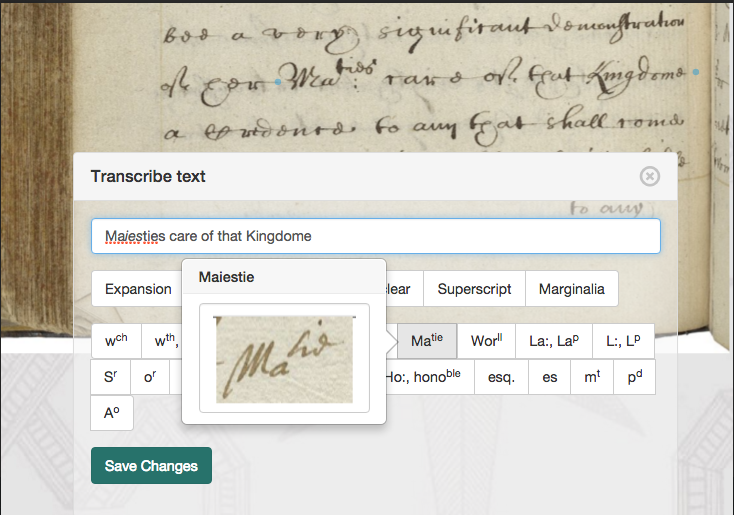 bee a very significant demonstration
of her Ma:ties care of that Kingdome
a evidence to any that shall come
Transcribe text
to any
Maiesties care of that Kingdome
Expansion lear Superscript Marginalia
Maiestie
wch wth, Matie Worll La:, Lap L:, Lp
Matie
Sr or Ho:, honoble esq. es mt pd
Ao
Save Changes